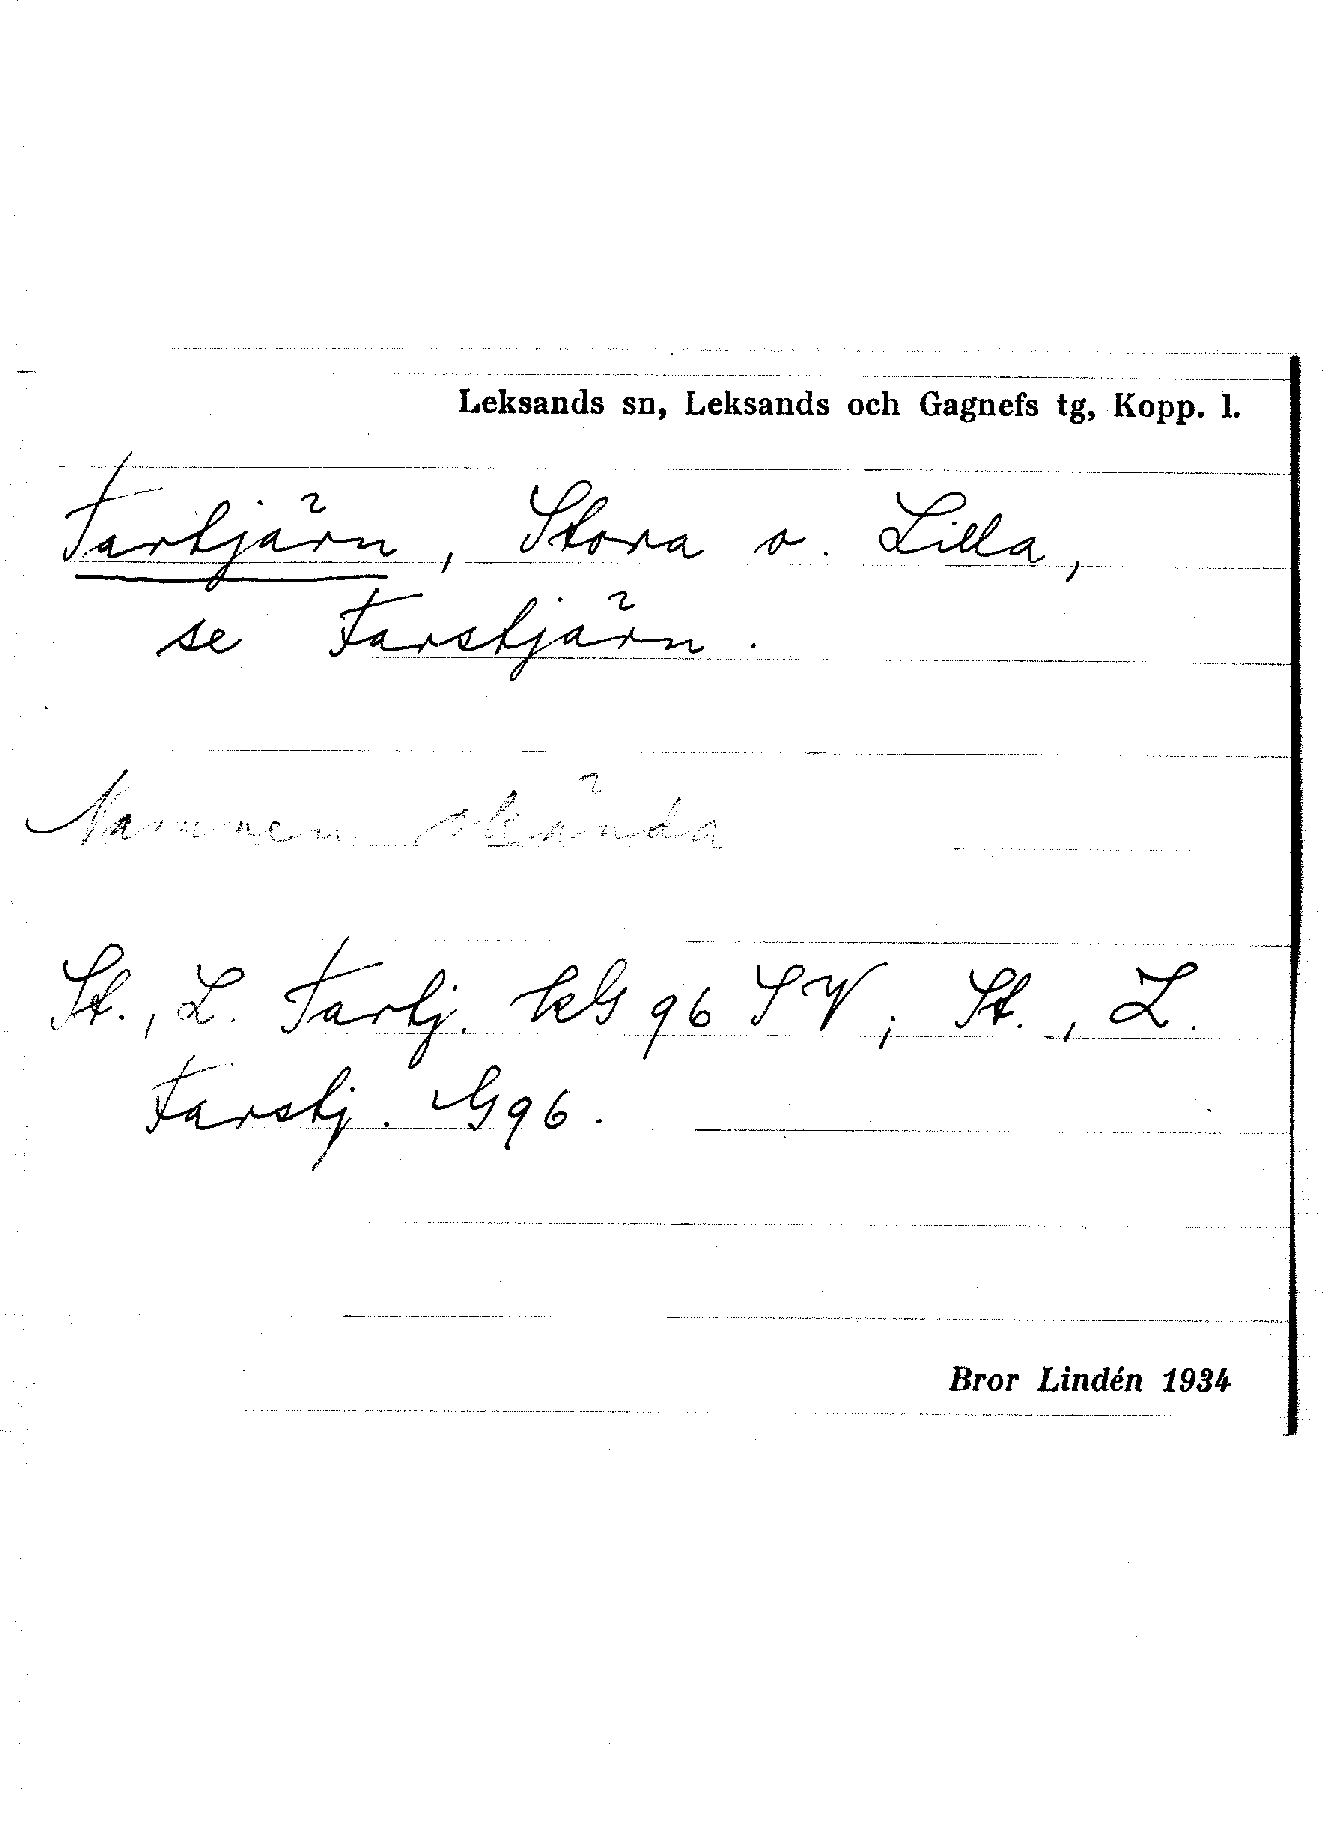 Leksands sn, Leksands och Gagnefs tg, Kopp. l.
Fartjärn, Stora o. Lilla,
se Farstjärn.
Namnen okända
St., L. Fartj. kG 96 SV; St., L.
Farstj. G 96.
Bror Lindén 1934